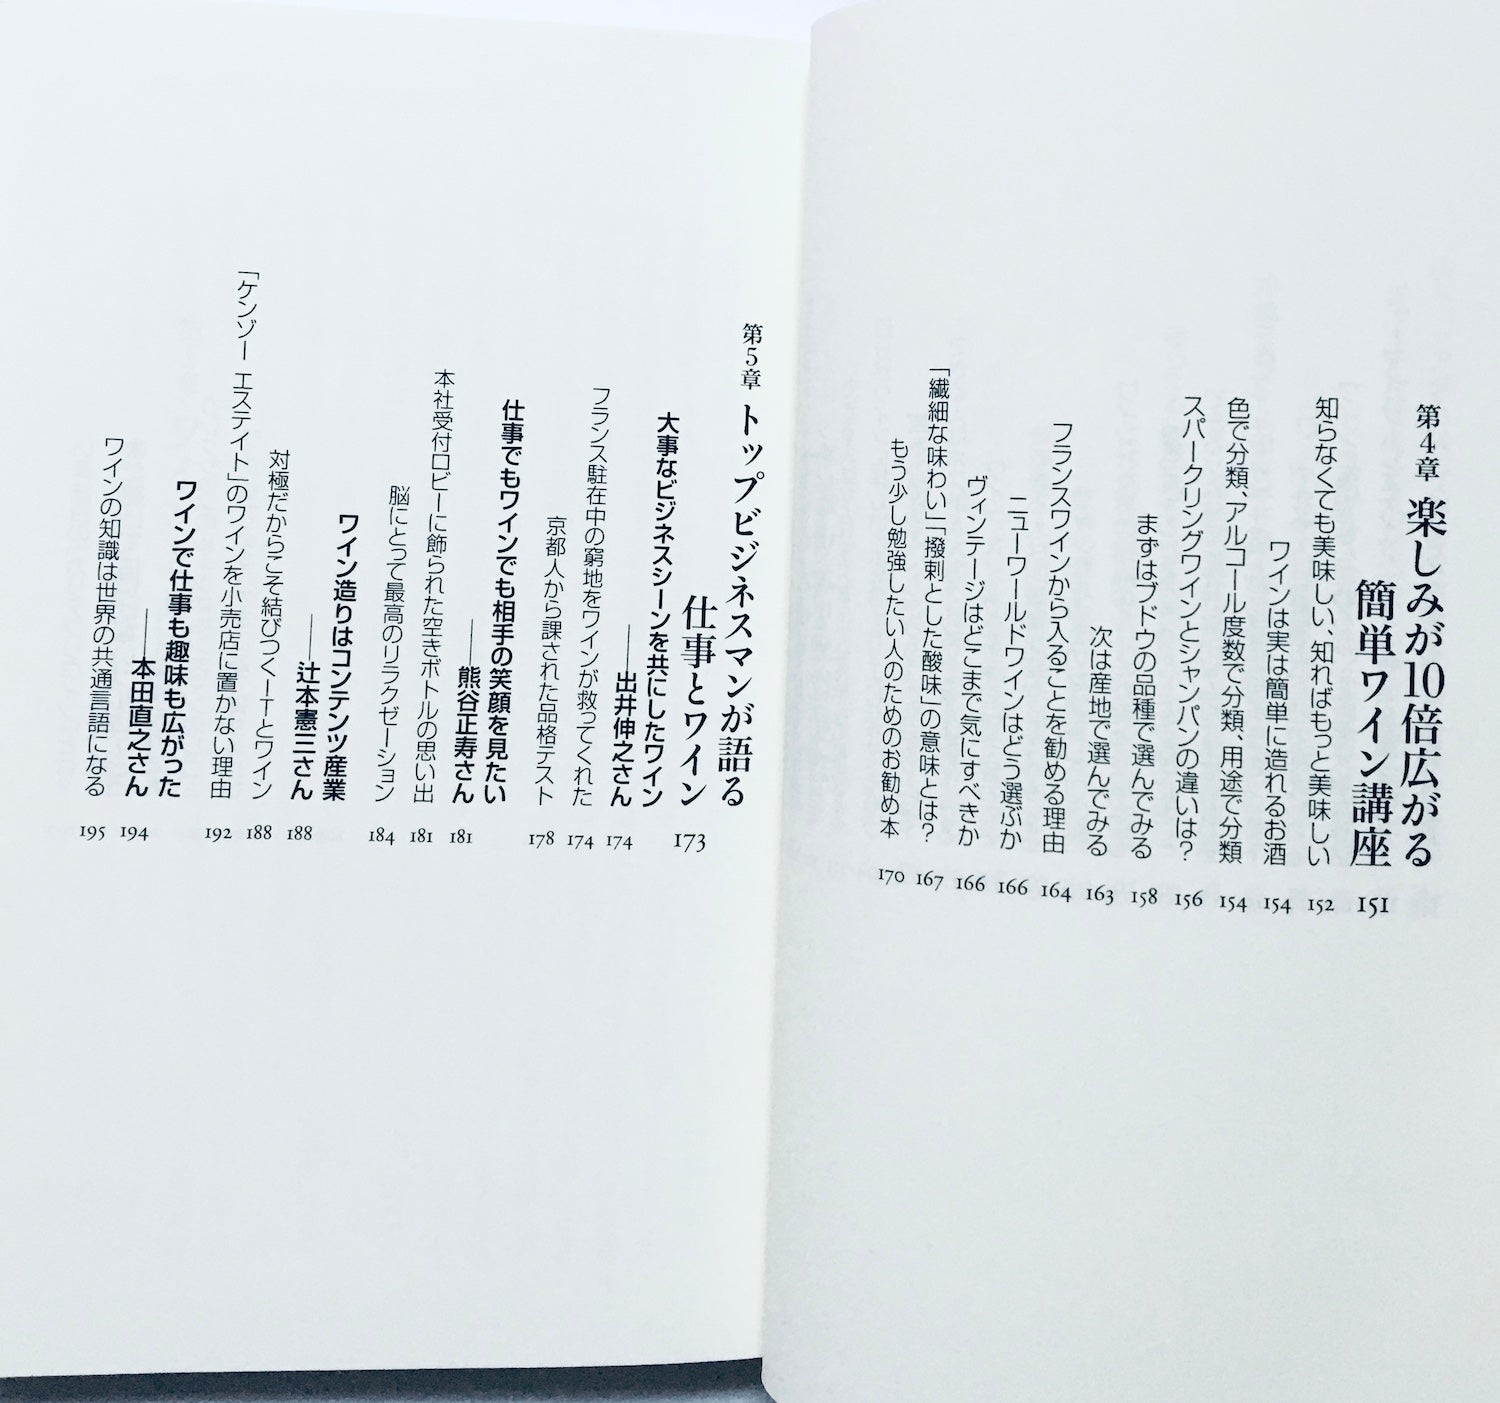 第4章 楽しみが10倍広がる
簡単ワイン講座 151
知らなくても美味しい、知ればもっと美味しい 152
ワインは実は簡単に造れるお酒 154
色で分類、アルコール度数で分類、用途で分類 154
スパークリングワインとシャンパンの違いは? 156
まずはブドウの品種で選んでみる 158
次は産地で選んでみる 163
フランスワインから入ることを勧める理由 164
ニューワールドワインはどう選ぶか 166
ヴィンテージはどこまで気にすべきか 166
「繊細な味わい」「撥剌とした酸味」の意味とは? 167
もう少し勉強したい人のためのお勧め本 170
第5章 トップビジネスマンが語る
仕事とワイン 173
大事なビジネスシーンを共にしたワイン
——出井伸之さん 174
フランス駐在中の窮地をワインが救ってくれた 174
京都人から課された品格テスト 178
仕事でもワインでも相手の笑顔を見たい
——熊谷正寿さん 181
本社受付ロビーに飾られた空きボトルの思い出 181
脳にとって最高のリラクゼーション 184
ワイン造りはコンテンツ産業
——辻本憲三さん 188
対極だからこそ結びつくITとワイン 188
「ケンゾー エステイト」のワインを小売店に置かない理由 192
ワインで仕事も趣味も広がった
——本田直之さん 194
ワインの知識は世界の共通言語になる 195